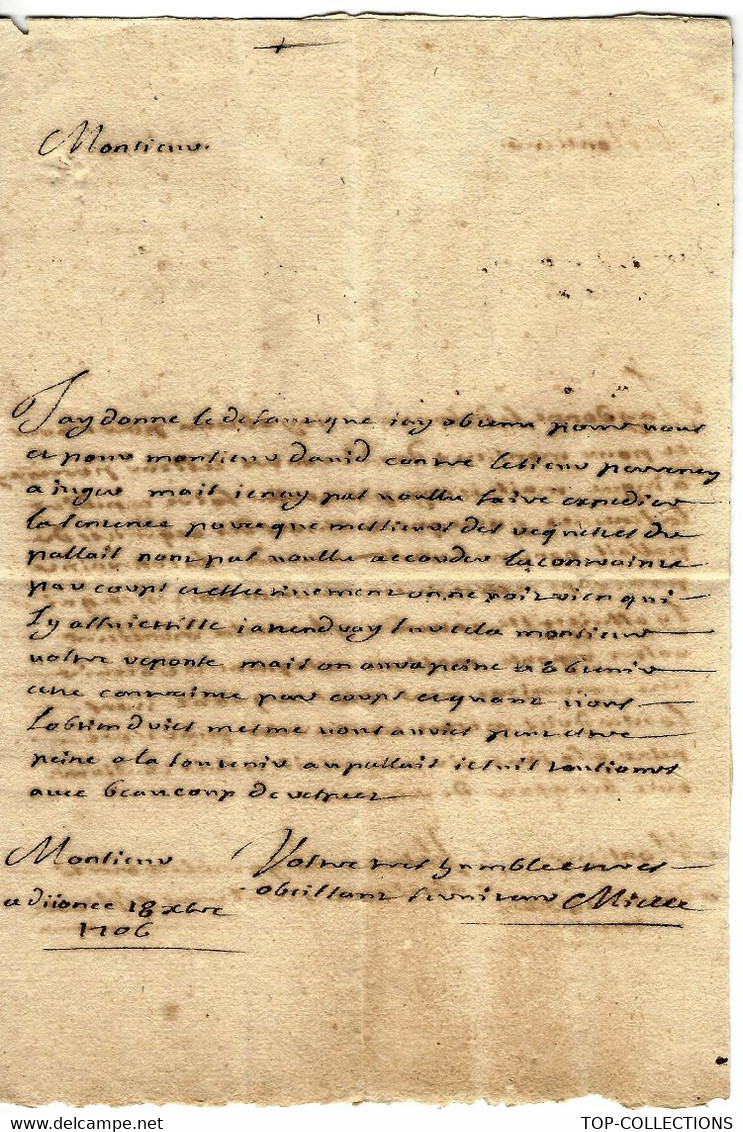 Monsieur
Jay donne le defaut que jay obtenu pour vous
et pour monsieur david contre le sieur perreney
a juger mais je nay pas voullu faire expedier
la sentence parceque messieurs des requestes du
pallais nont pas voullu accorder la contrainte
par corps et effectivement on ne voit rien qui
jattendray sur cela monsieur
vostre reponse mais on aura peine a obtenir
une contrainte par corps et quant vous
lobtiendries mesme vous auries peut estre
peine a la soutenir au pallais je suis tousiours
avec beaucoup de respect
Monsieur
Vostre tres humble et tres
obeissant serviteur Micelle
a dijon ce 18 xbre
1706
TOP-COLLECTIONS